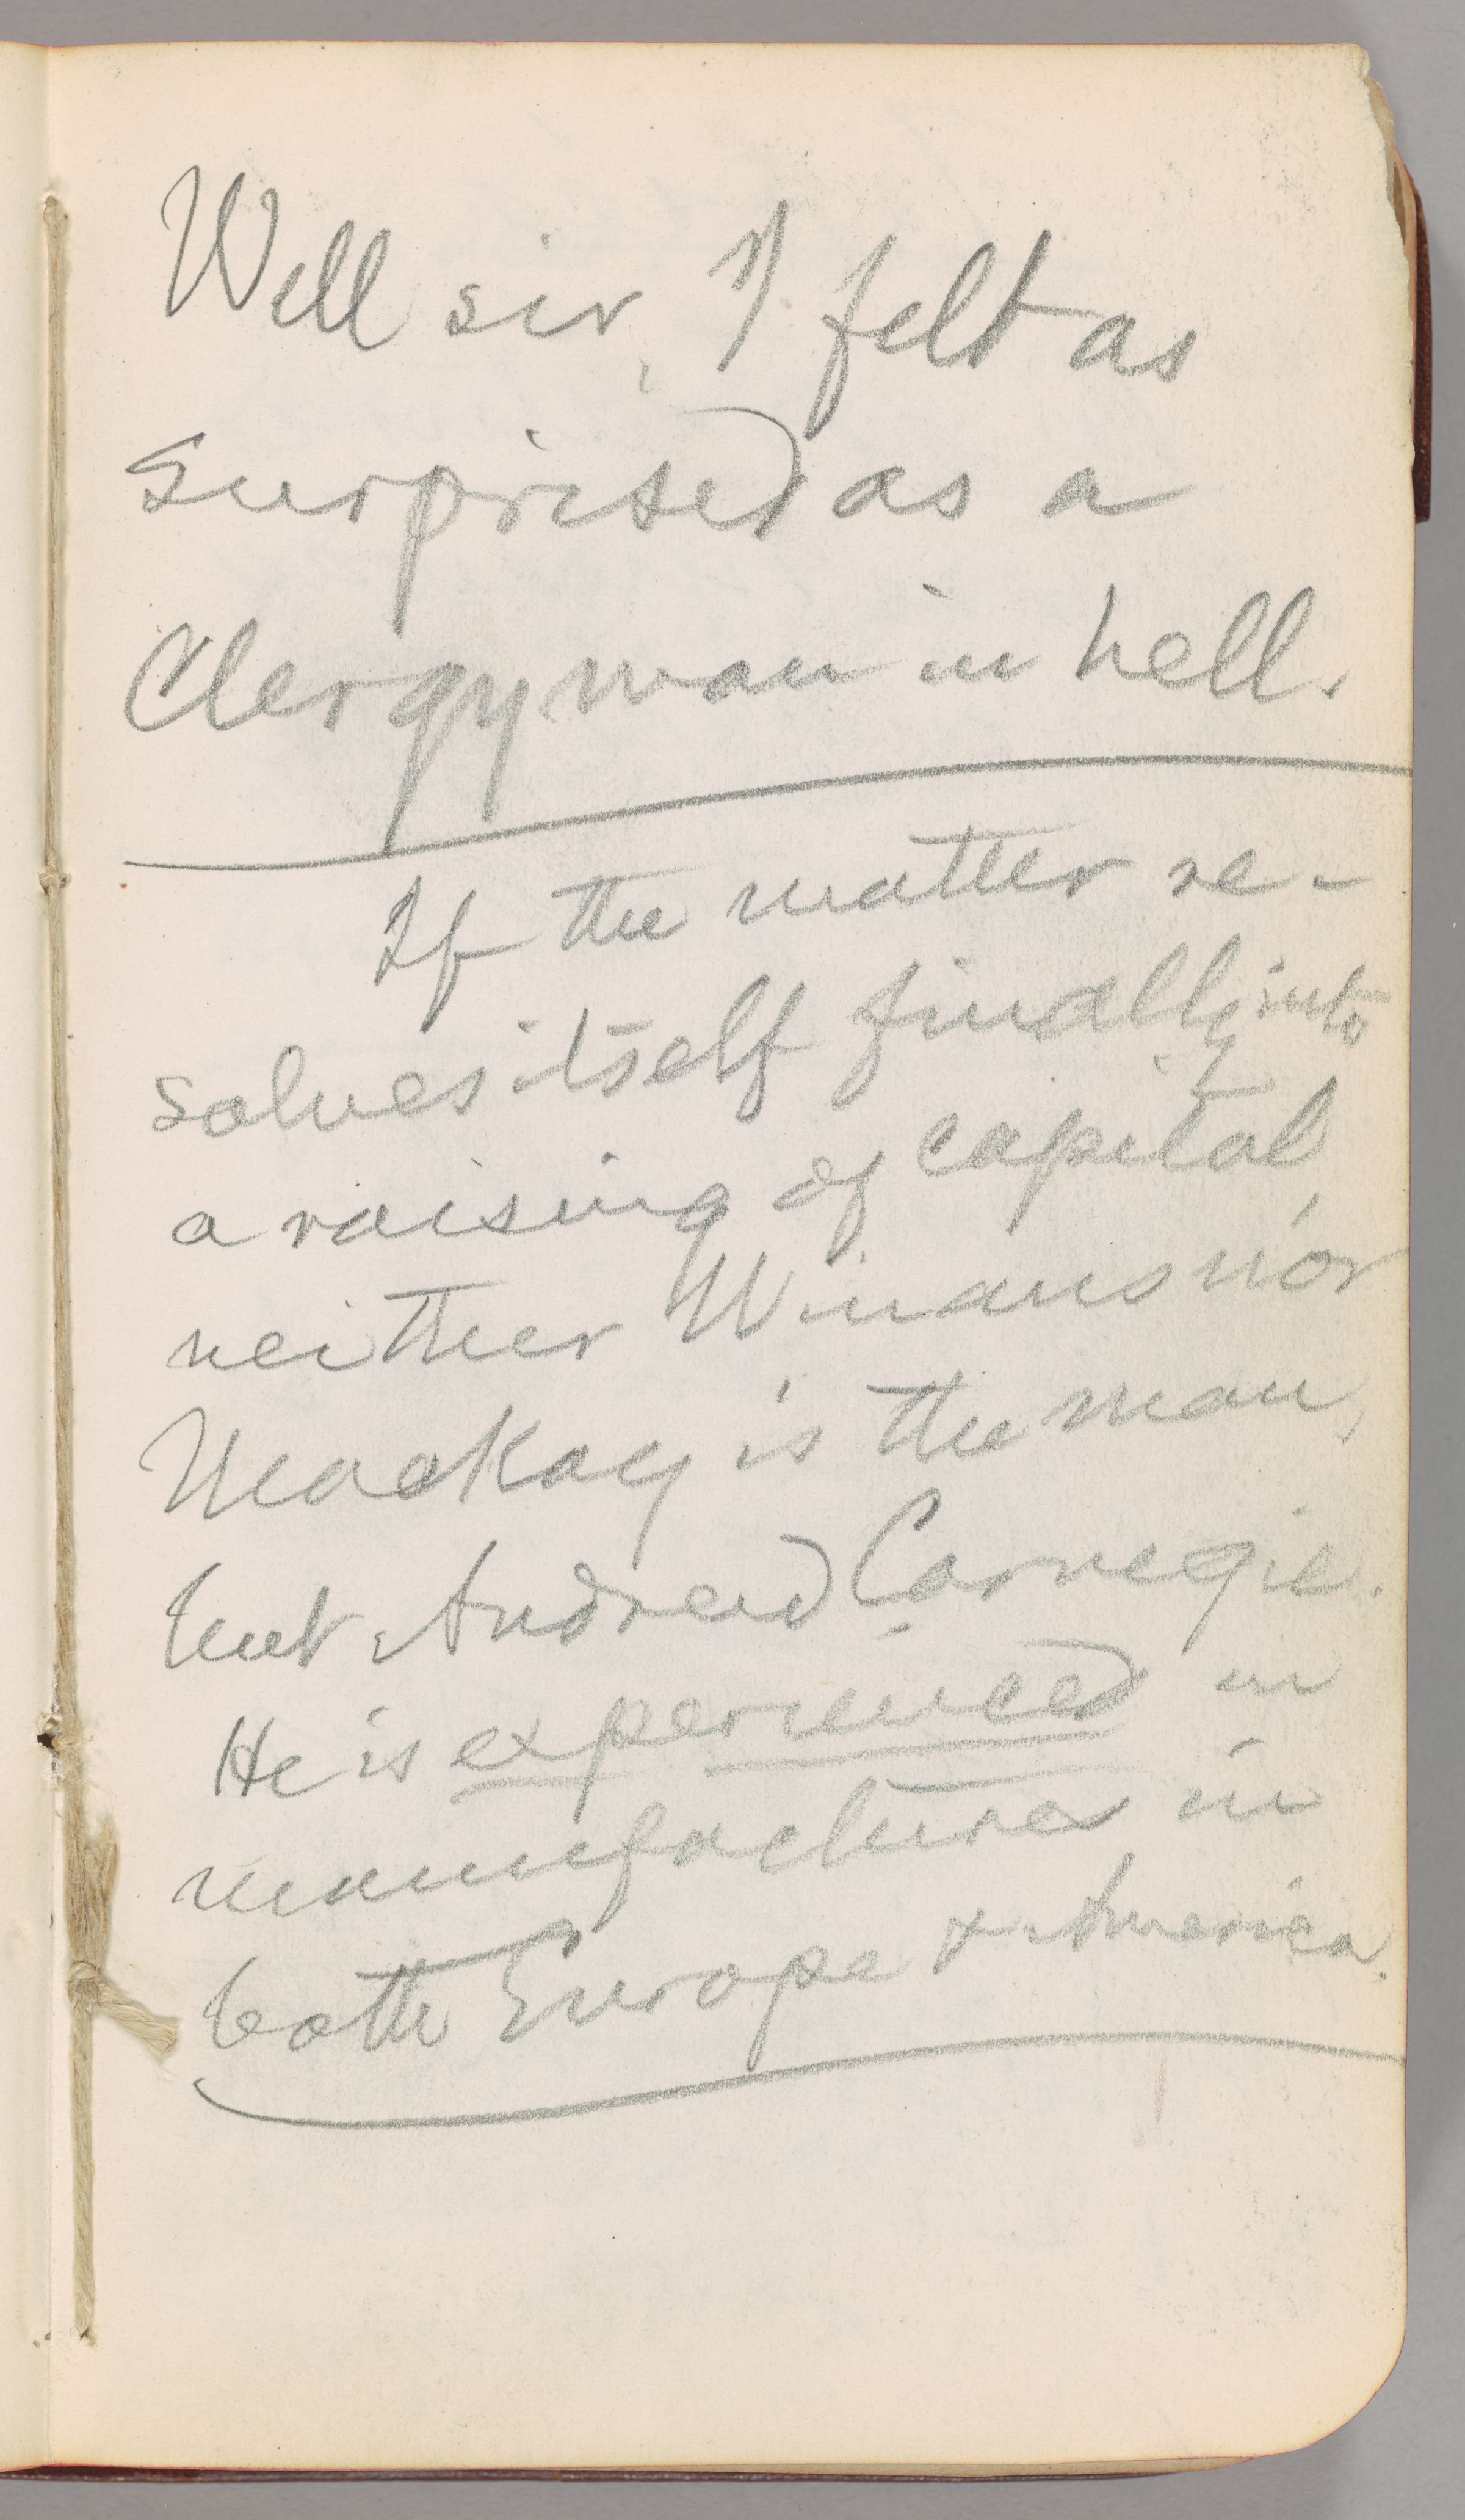 Well sir, I felt as
surprised as a
Clergyman in hell.
If the matter re-
solves itself finally into
a raising of capital,
neither Winans nor
Mackay is the man,
but Andrew Carnegie.
He is experienced in
manufactures in
both Europe & America.